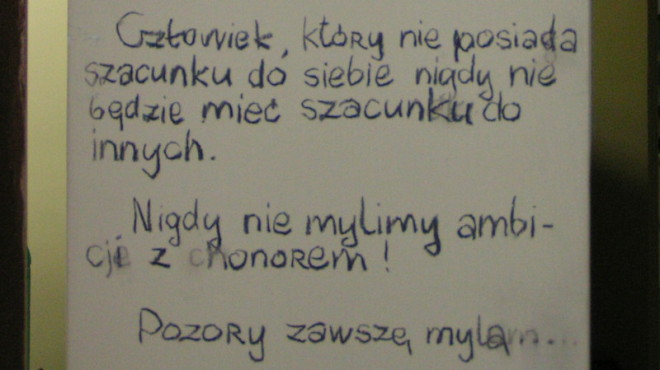 Człowiek, który nie posiada
szacunku do siebie nigdy nie
będzie mieć szacunku do
innych.
Nigdy nie mylimy ambi-
cji z chonorem!
Pozory zawsze, mylą...